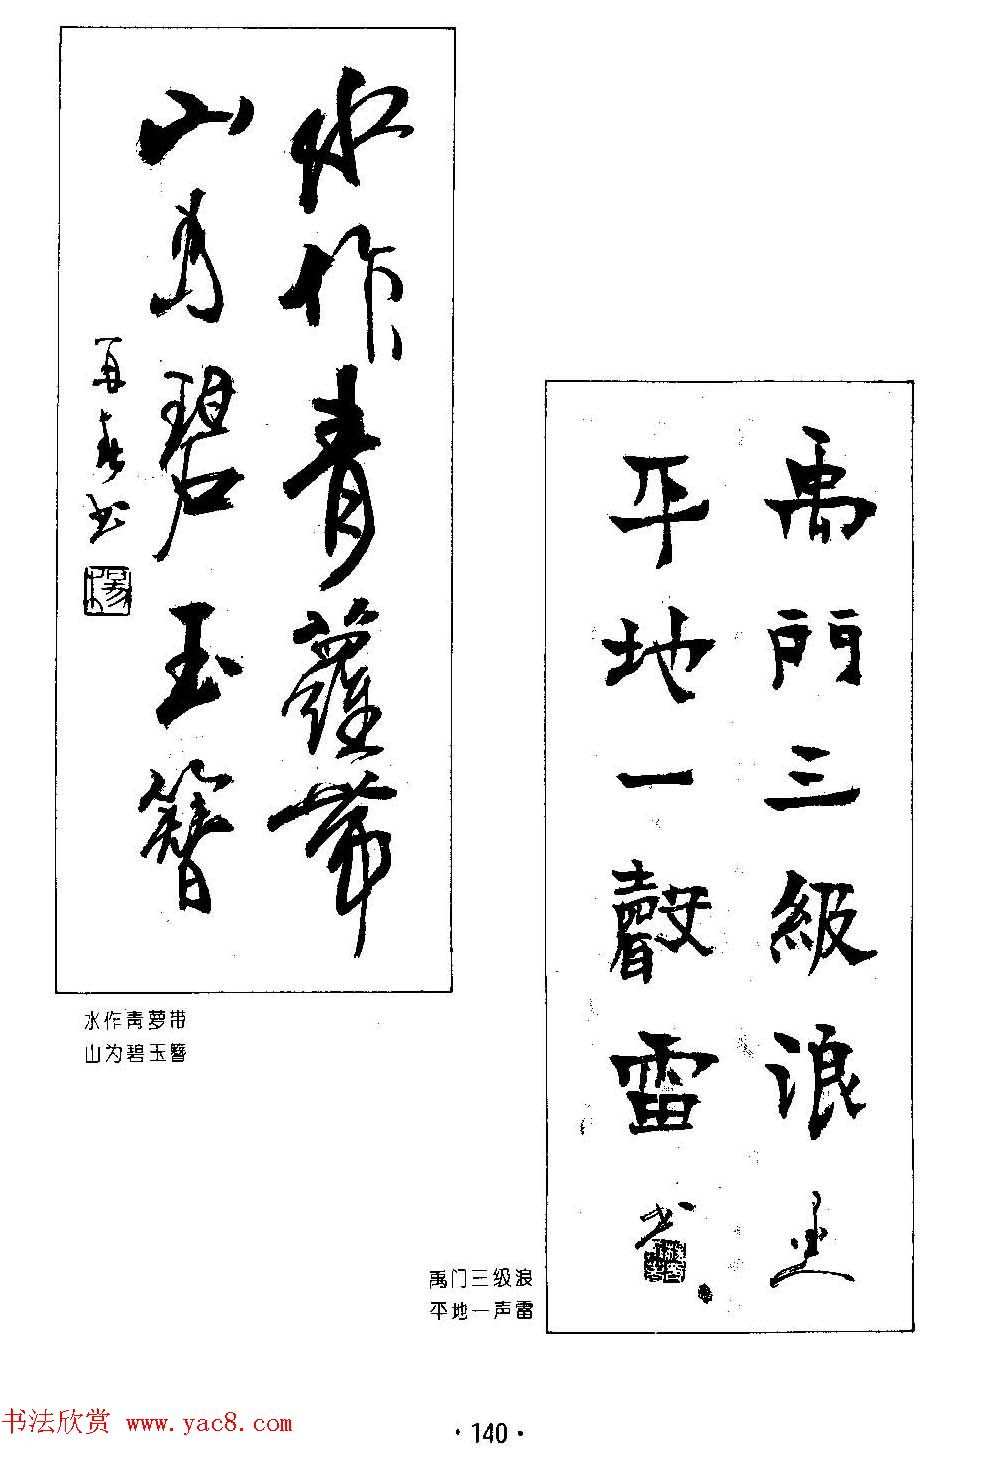 水作青蘿帶
山為碧玉簪
再春书
楊
水作青萝带
山为碧玉簪
禹門三級浪
平地一聲雷
书
禹门三级浪
平地一声雷
书法欣赏 www.yac8.com
·140·